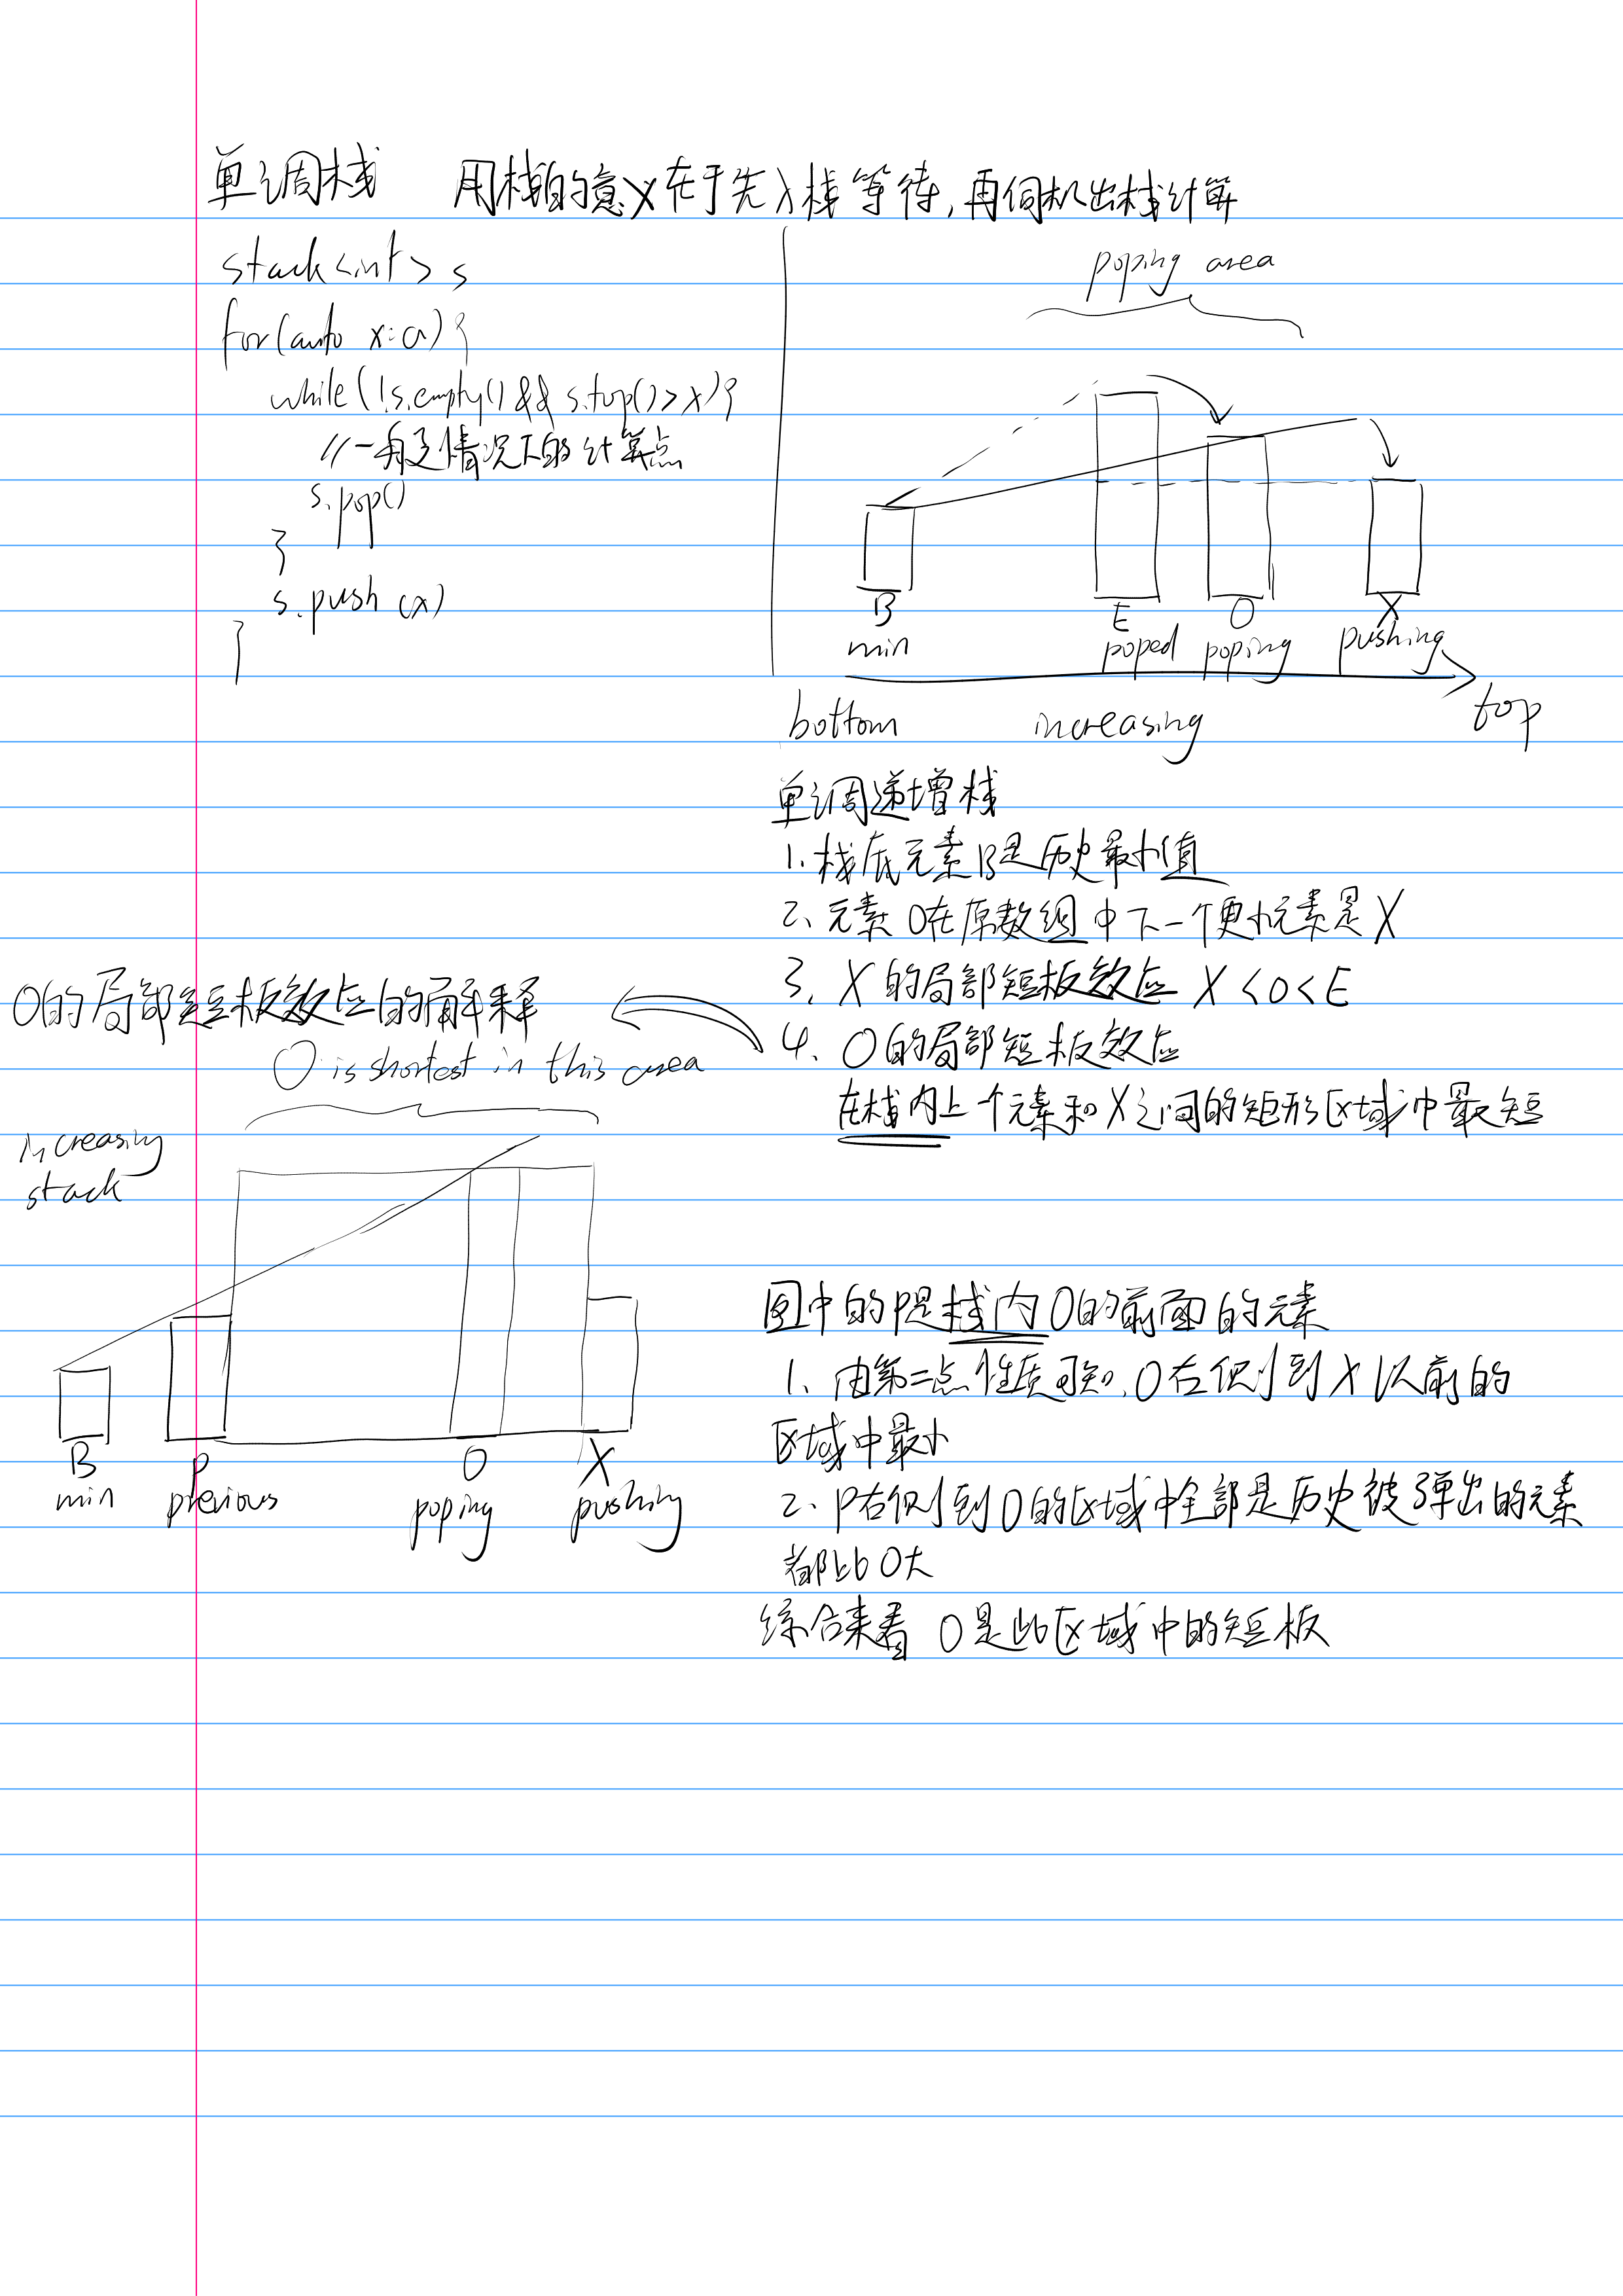 单调栈 用栈的意义在于先入栈等待,再伺机出栈计算
stack<int> s
for(auto x:a){
while(!s.empty() && s.top()>x){
//一般情况下的计算点
s.pop()
}
s.push(x)
}
poping area
B
min
E
poped
O
poping
X
pushing
bottom increasing top
单调递增栈
1. 栈底元素B是历史最小值
2. 元素O在原数组中下一个更小元素是X
3. X的局部短板效应 X<O<E
4. O的局部短板效应
在栈内上个元素和X之间的矩形区域中最短
O的局部短板效应的解释
O is shortest in this area
increasing
stack
B
min
P
previous
O
poping
X
pushing
图中的P是栈内O的前面的元素
1. 由第二点性质可知,O右侧到X以前的
区域中最小
2. P右侧到O的区域中全部是历史被弹出的元素
都比O大
综合来看 O是此区域中的短板